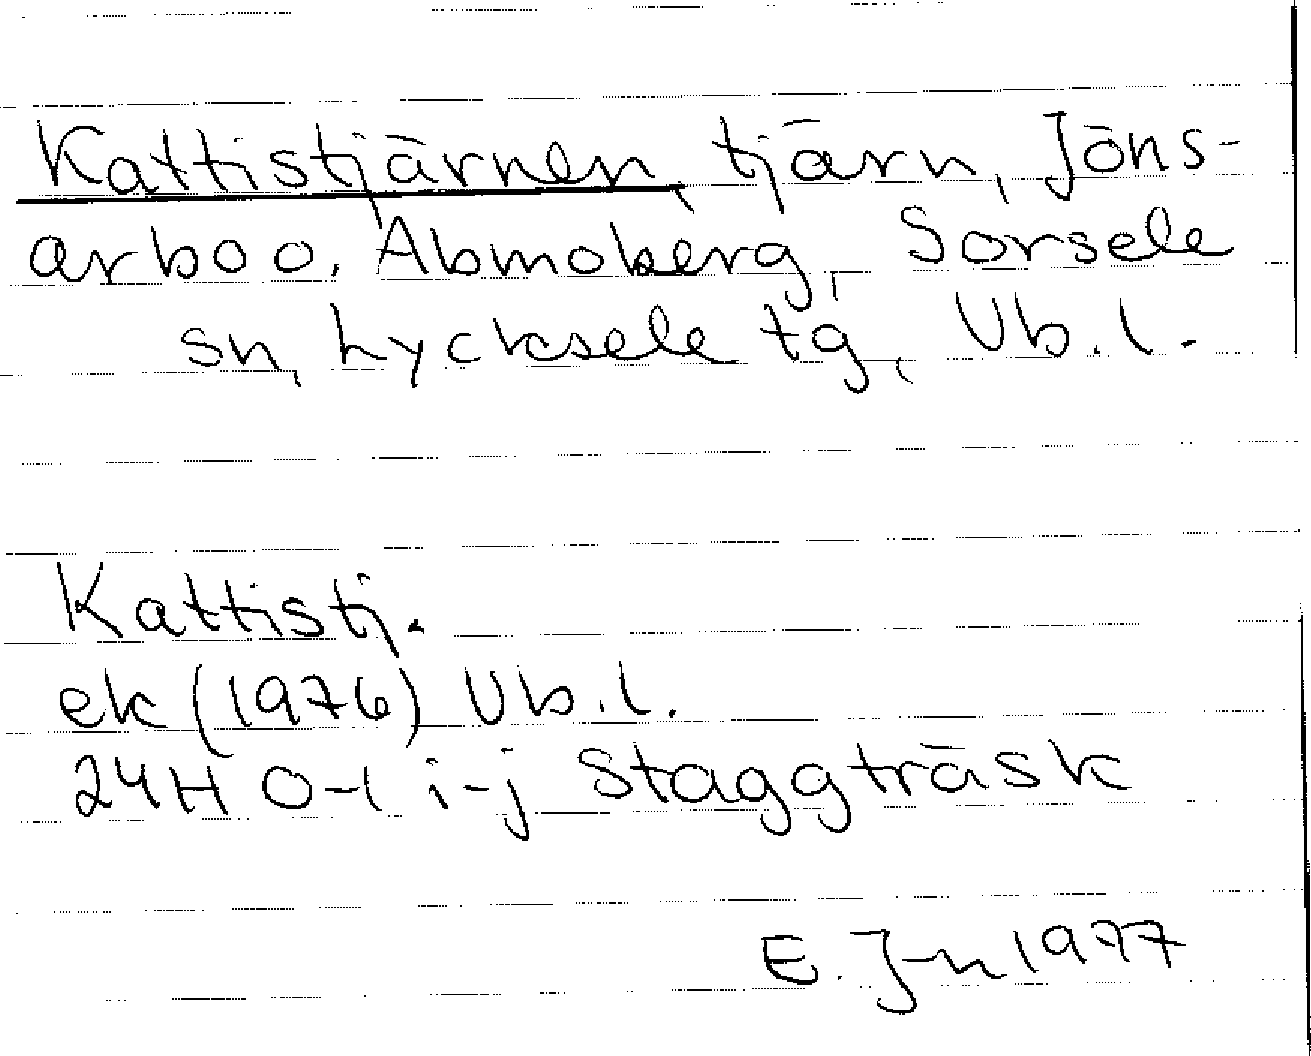 Kattistjärnen, tjärn, Jöns-
arboo, Abmoberg, Sorsele
sn, Lycksele tg, Vb.l.
Kattistj.
ek (1976) Vb.l.
24H 0-1 i-j Staggträsk
E. J-n 1977